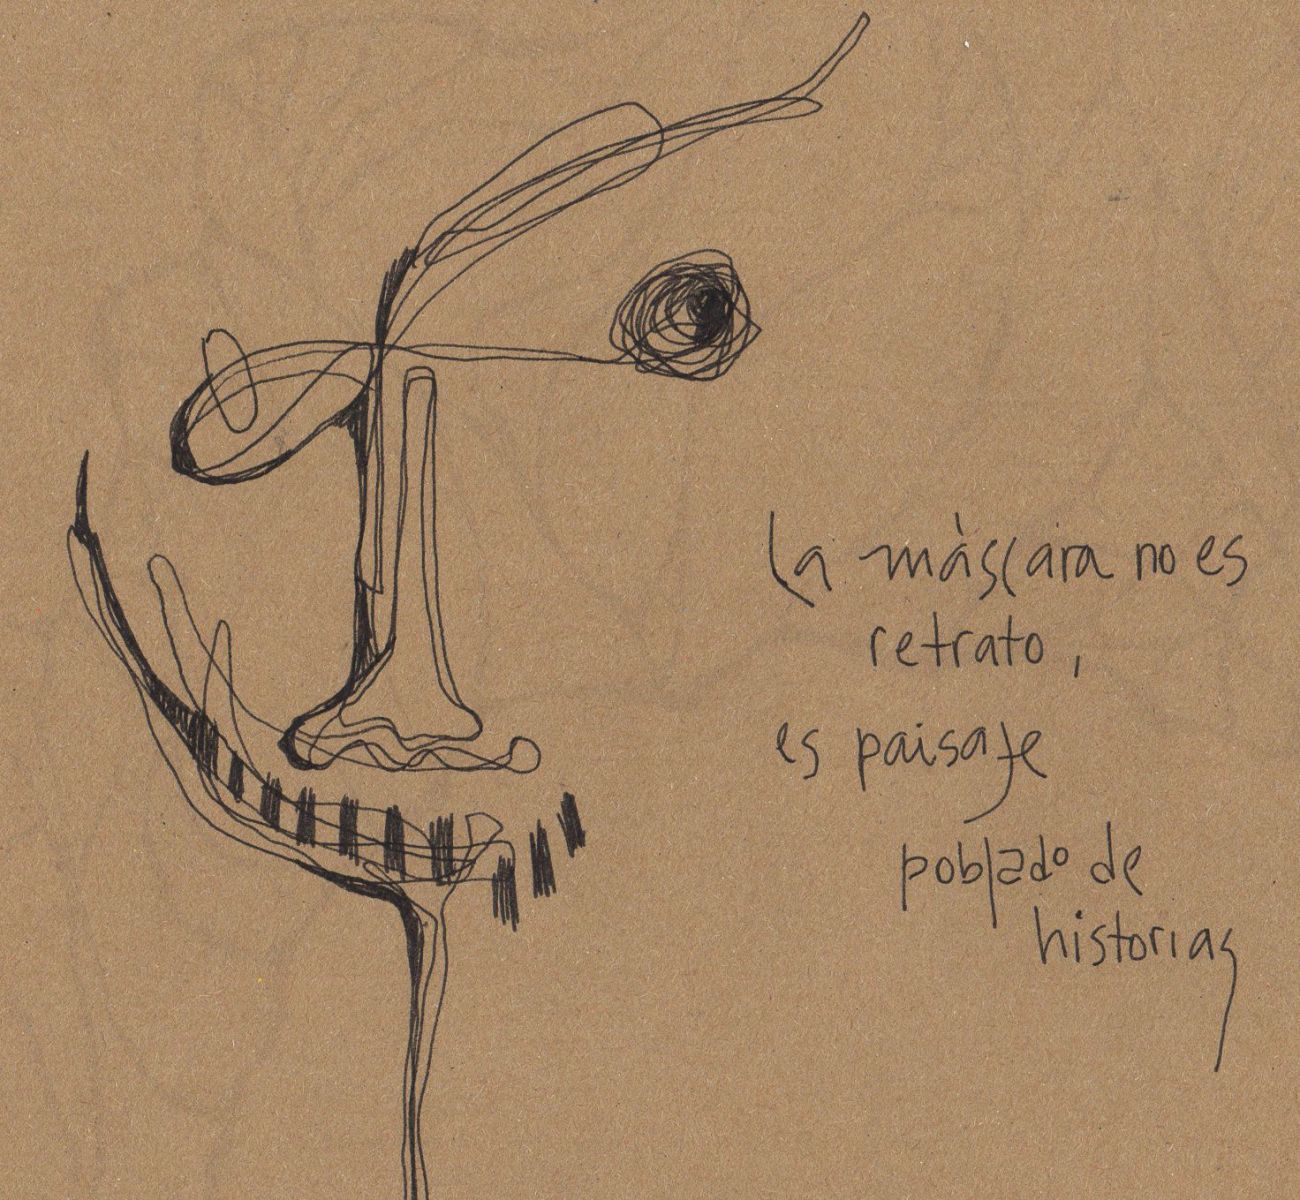 La máscara no es
retrato,
es paisaje
poblado de
historias